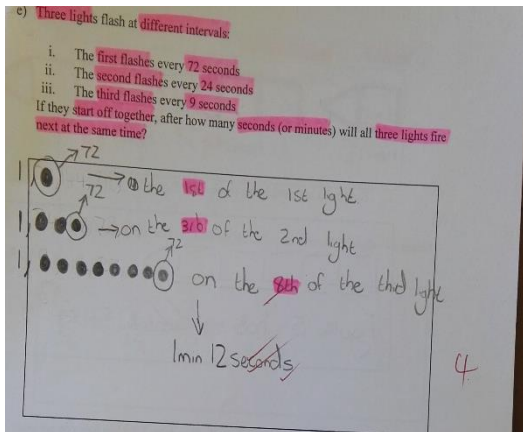 e) Three lights flash at different intervals:
i. The first flashes every 72 seconds
ii. The second flashes every 24 seconds
iii. The third flashes every 9 seconds
If they start off together, after how many seconds (or minutes) will all three lights fire
next at the same time?
72
on the 1st of the 1st light
72
on the 3rd of the 2nd light
72
on the 8th of the third light
1min 12 seconds
4